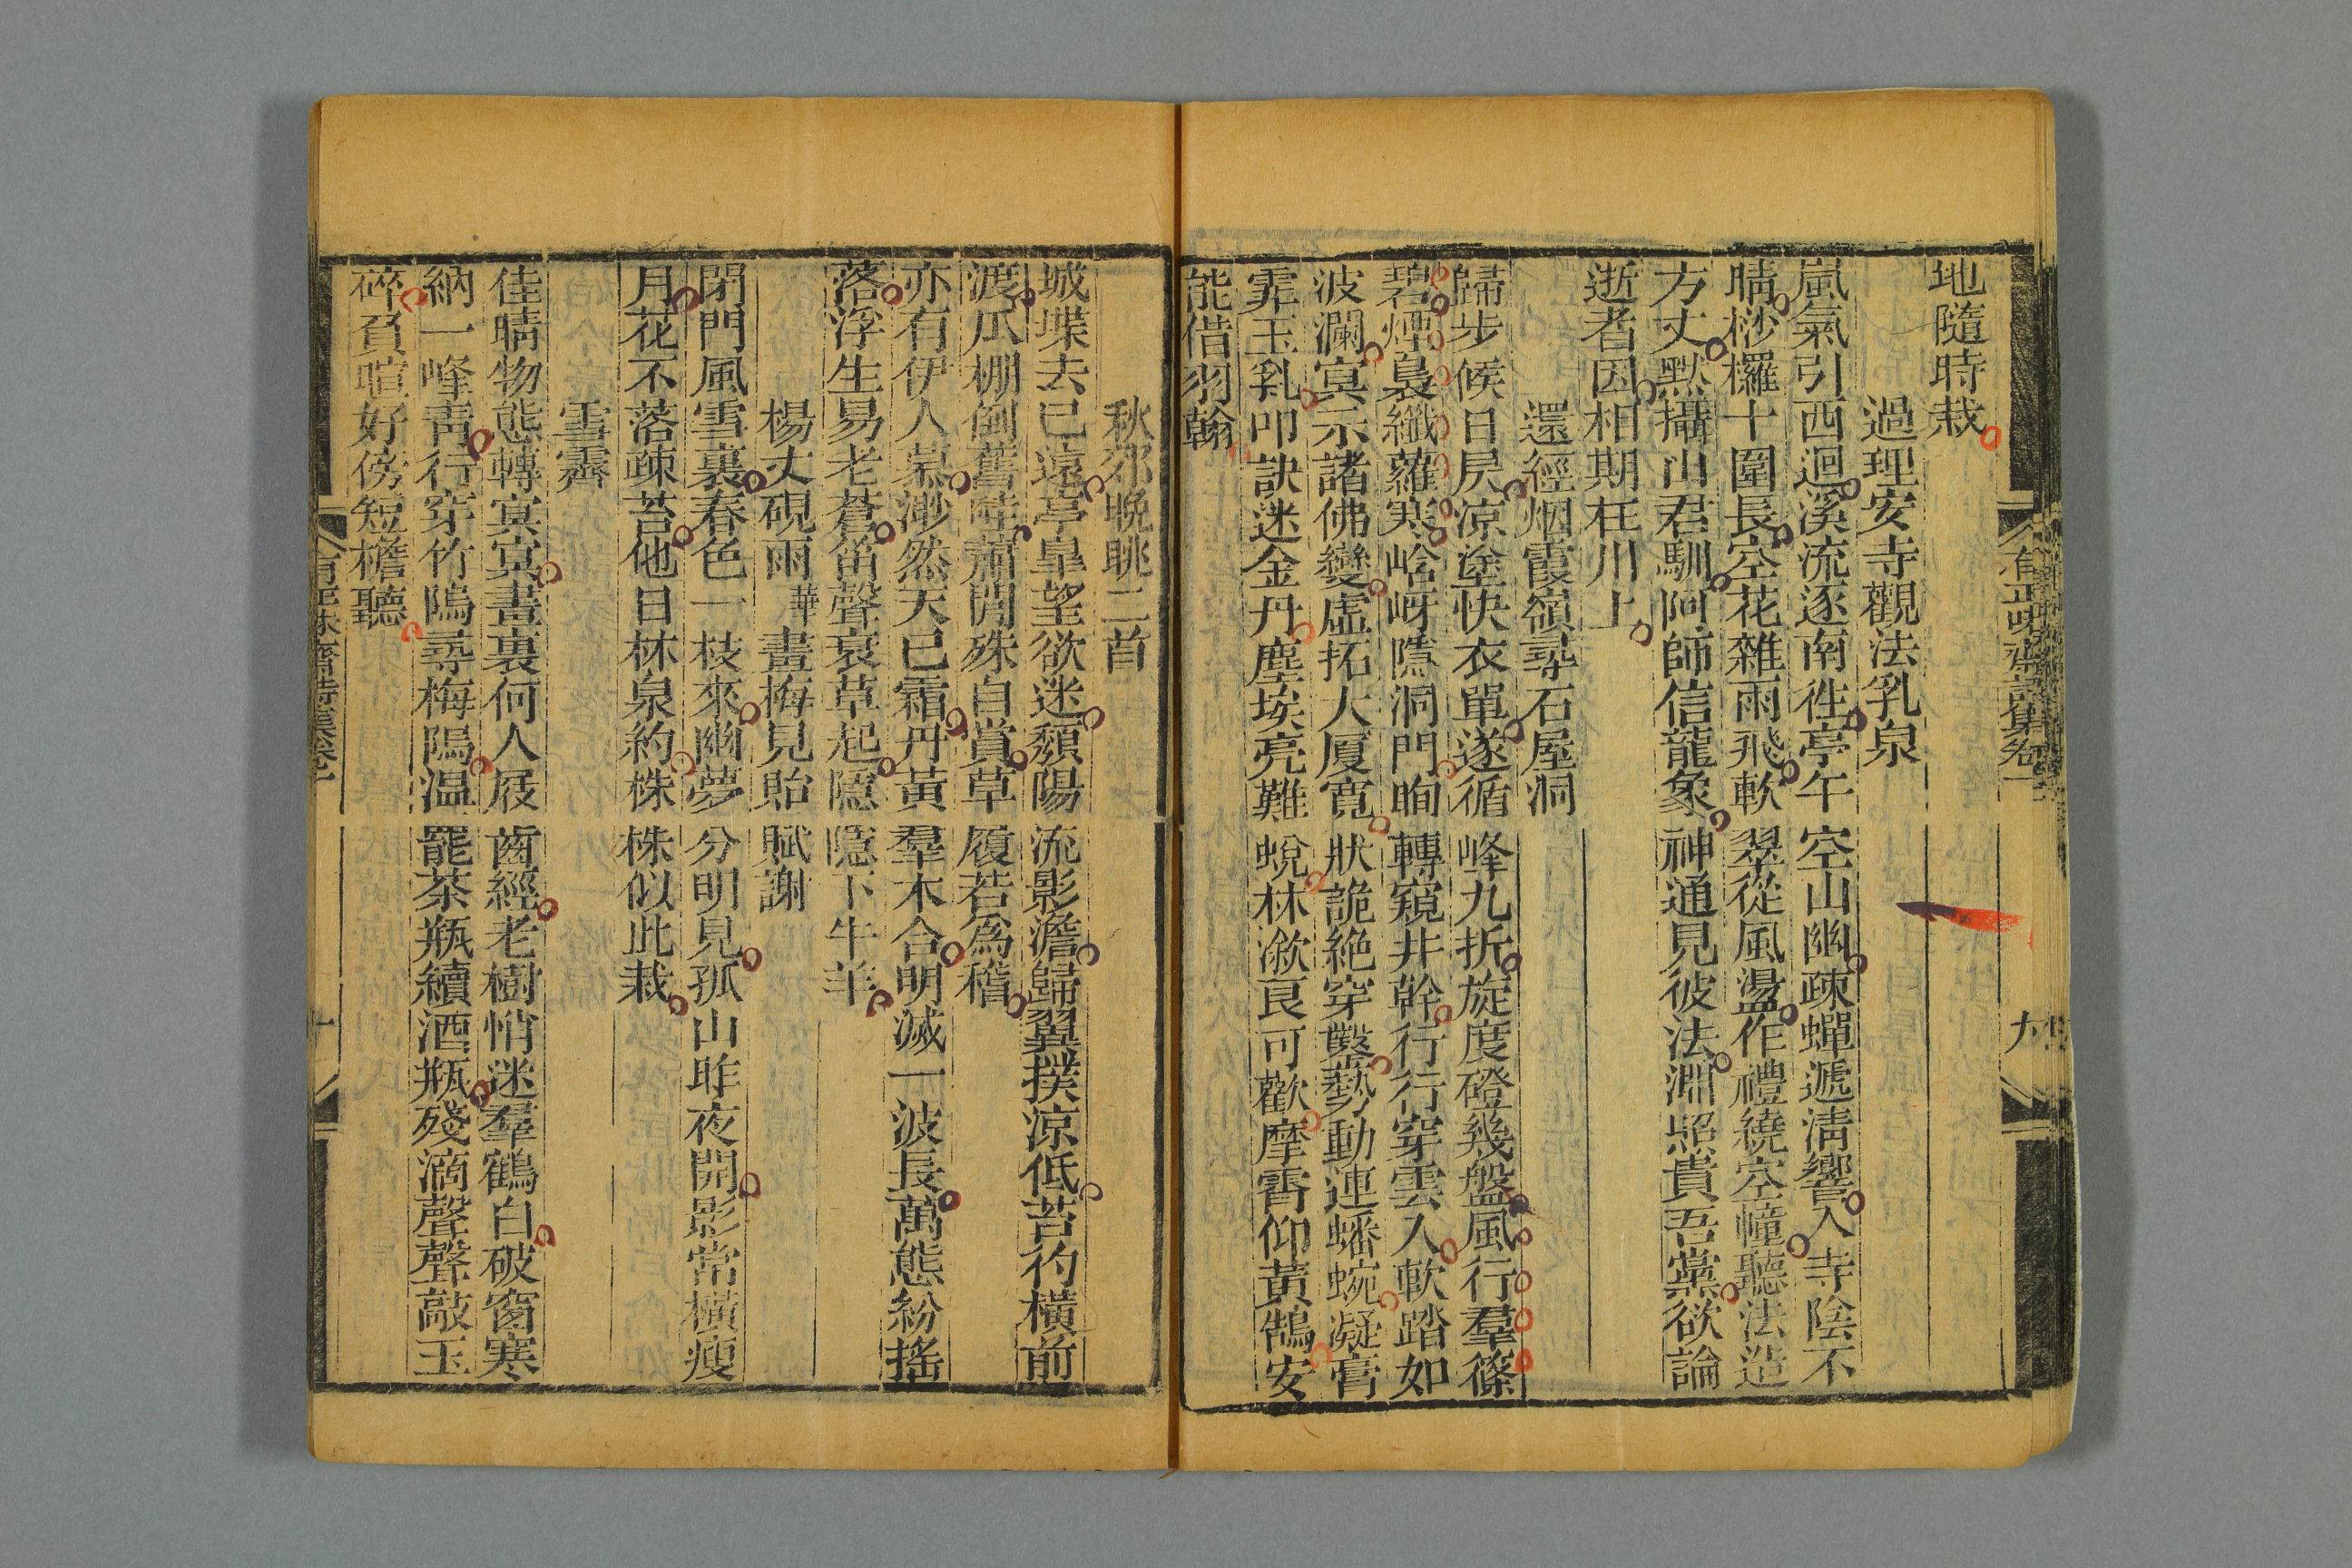 有正味齋詩集卷一
九
地隨時栽
過理安寺觀法乳泉
嵐氣引西迴溪流逐南徃亭午空山幽疎蟬遞淸響入寺陰不
晴桫欏十圍長空花雜雨飛軟翠從風盪作禮繞空幢聽法造
方丈默攝山君馴阿師信龍象神通見彼法淵照貴吾黨欲論
逝者因相期在川上
還經烟霞嶺尋石屋洞
歸步候日尻凉塗快衣單遂循峰九折旋度磴幾盤風行羣篠
碧煙裊纖蘿寒峆岈隱洞門眴轉窺井幹行行穿雲入軟踏如
波瀾㝠示諸佛變虛拓大厦寛狀詭絶穿鑿勢動連蟠蜿凝膏
霏玉乳叩訣迷金丹塵埃亮難蛻林漵良可歡摩霄仰黃鵠安
能借羽翰
秋郊晚眺二首
城堞去已遠亭皐望欲迷頽陽流影澹歸翼撲凉低苔彴橫前
渡瓜棚倒舊畦蕭閒殊自賞草履若爲稽
亦有伊人慕渺然天已霜丹黃羣木合明滅一波長萬態紛搖
落浮生易老蒼笛聲衰草起隱隱下牛羊
楊丈硯雨華畫梅見貽賦謝
閉門風雪裏春色一枝來幽夢分明見孤山昨夜開影常橫瘦
月花不落疎苔他日林泉約株株似此栽
雪霽
佳晴物態轉㝠㝠畫裏何人屐齒經老樹悄迷羣鶴白破窗寒
納一峰靑行穿竹塢尋梅塢温罷茶瓶續酒瓶殘滴聲聲敲玉
碎負暄好傍短檐聽
有正味齋詩集卷一
十